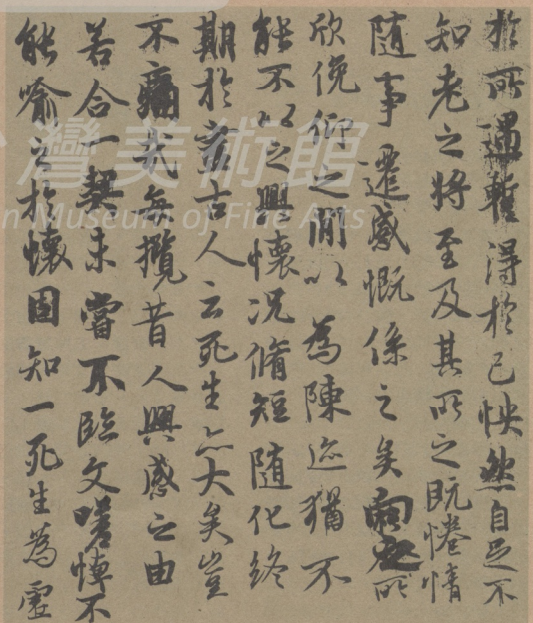 於所遇暫得於己怏然自足不
知老之將至及其所之既惓情
随事遷感慨係之矣向之所
欣俛仰之間以為陳迹猶不
能不以之興懷况脩短随化終
期於盡古人云死生亦大矣豈
不痛哉每攬昔人興感之由
若合一契未嘗不臨文嗟悼不
能喻之於懷固知一死生為虛
灣美術館
n Museum of Fine Arts